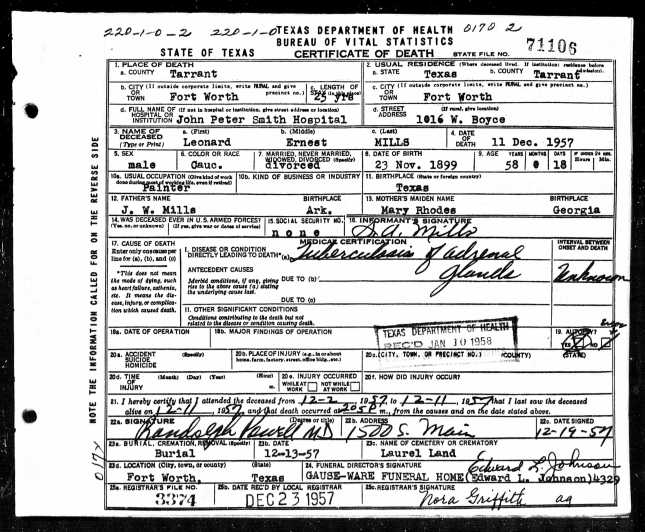 220-1-0-2 220-1-0 TEXAS DEPARTMENT OF HEALTH 0170 2
BUREAU OF VITAL STATISTICS
STATE OF TEXAS CERTIFICATE OF DEATH STATE FILE NO. 71106
1. PLACE OF DEATH
a. COUNTY Tarrant
2. USUAL RESIDENCE (Where deceased lived. If institution: residence before admission).
a. STATE Texas b. COUNTY Tarrant
b. CITY (If outside corporate limits, write RURAL and give precinct no.)
OR TOWN Fort Worth
c. LENGTH OF STAY (in this place) 25 yrs
c. CITY (If outside corporate limits, write RURAL and give precinct no.)
OR TOWN Fort Worth
d. FULL NAME OF (If not in hospital or institution, give street address or location)
HOSPITAL OR INSTITUTION John Peter Smith Hospital
d. STREET ADDRESS (If rural, give location)
1016 W. Boyce
3. NAME OF DECEASED (Type or Print)
a. (First) Leonard
b. (Middle) Ernest
c. (Last) MILLS
4. DATE OF DEATH 11 Dec. 1957
5. SEX male
6. COLOR OR RACE Cauc.
7. MARRIED, NEVER MARRIED, WIDOWED, DIVORCED (Specify) divorced
8. DATE OF BIRTH 23 Nov. 1899
9. AGE YEARS 58 MONTHS 0 DAYS 18 IF UNDER 24 HRS. Hours Min.
10a. USUAL OCCUPATION (Give kind of work done during most of working life, even if retired) Painter
10b. KIND OF BUSINESS OR INDUSTRY
11. BIRTHPLACE (State or foreign country) Texas
12. FATHER'S NAME J. W. Mills
BIRTHPLACE Ark.
13. MOTHER'S MAIDEN NAME Mary Rhodes
BIRTHPLACE Georgia
14. WAS DECEASED EVER IN U.S. ARMED FORCES?
(Yes, no, or unknown) (If yes, give war or dates of service)
15. SOCIAL SECURITY NO. none
16. INFORMANT'S SIGNATURE Mills
MEDICAL CERTIFICATION
17. CAUSE OF DEATH
Enter only one cause per line for (a), (b), and (c)
I. DISEASE OR CONDITION
DIRECTLY LEADING TO DEATH* (a) Tuberculosis of adrenal glands
INTERVAL BETWEEN ONSET AND DEATH
Unknown
*This does not mean the mode of dying, such as heart failure, asthenia, etc. It means the disease, injury, or complication which caused death.
ANTECEDENT CAUSES
Morbid conditions, if any, giving rise to the above cause (a) stating the underlying cause last.
DUE TO (b)
DUE TO (c)
II. OTHER SIGNIFICANT CONDITIONS
Conditions contributing to the death but not related to the disease or condition causing death.
18a. DATE OF OPERATION
18b. MAJOR FINDINGS OF OPERATION
TEXAS DEPARTMENT OF HEALTH
REC'D JAN 10 1958
19. AUTOPSY?
YES NO
20a. ACCIDENT SUICIDE HOMICIDE (Specify)
20b. PLACE OF INJURY (e.g., in or about home, farm, factory, street, office bldg., etc.)
20c. (CITY, TOWN, OR PRECINCT NO.) (COUNTY) (STATE)
20d. TIME OF INJURY (Month) (Day) (Year) (Hour) m.
20e. INJURY OCCURRED
WHILE AT WORK NOT WHILE AT WORK
20f. HOW DID INJURY OCCUR?
21. I hereby certify that I attended the deceased from 12-2, 1957, to 12-11, 1957 that I last saw the deceased
alive on 12-11 1957, and that death occurred at 205P m., from the causes and on the date stated above.
22a. SIGNATURE (Degree or title) Randolph Powell MD
22b. ADDRESS 1500 S. Main
22c. DATE SIGNED 12-19-57
23a. BURIAL, CREMATION, REMOVAL (Specify) Burial
23b. DATE 12-13-57
23c. NAME OF CEMETERY OR CREMATORY Laurel Land
23d. LOCATION (City, town, or county) (State)
Fort Worth, Texas
24. FUNERAL DIRECTOR'S SIGNATURE Edward L. Johnson
GAUSE-WARE FUNERAL HOME (Edward L. Johnson) 4329
25a. REGISTRAR'S FILE NO. 3374
25b. DATE REC'D BY LOCAL REGISTRAR DEC 23 1957
25c. REGISTRAR'S SIGNATURE Nora Griffith ag
NOTE THE INFORMATION CALLED FOR ON THE REVERSE SIDE